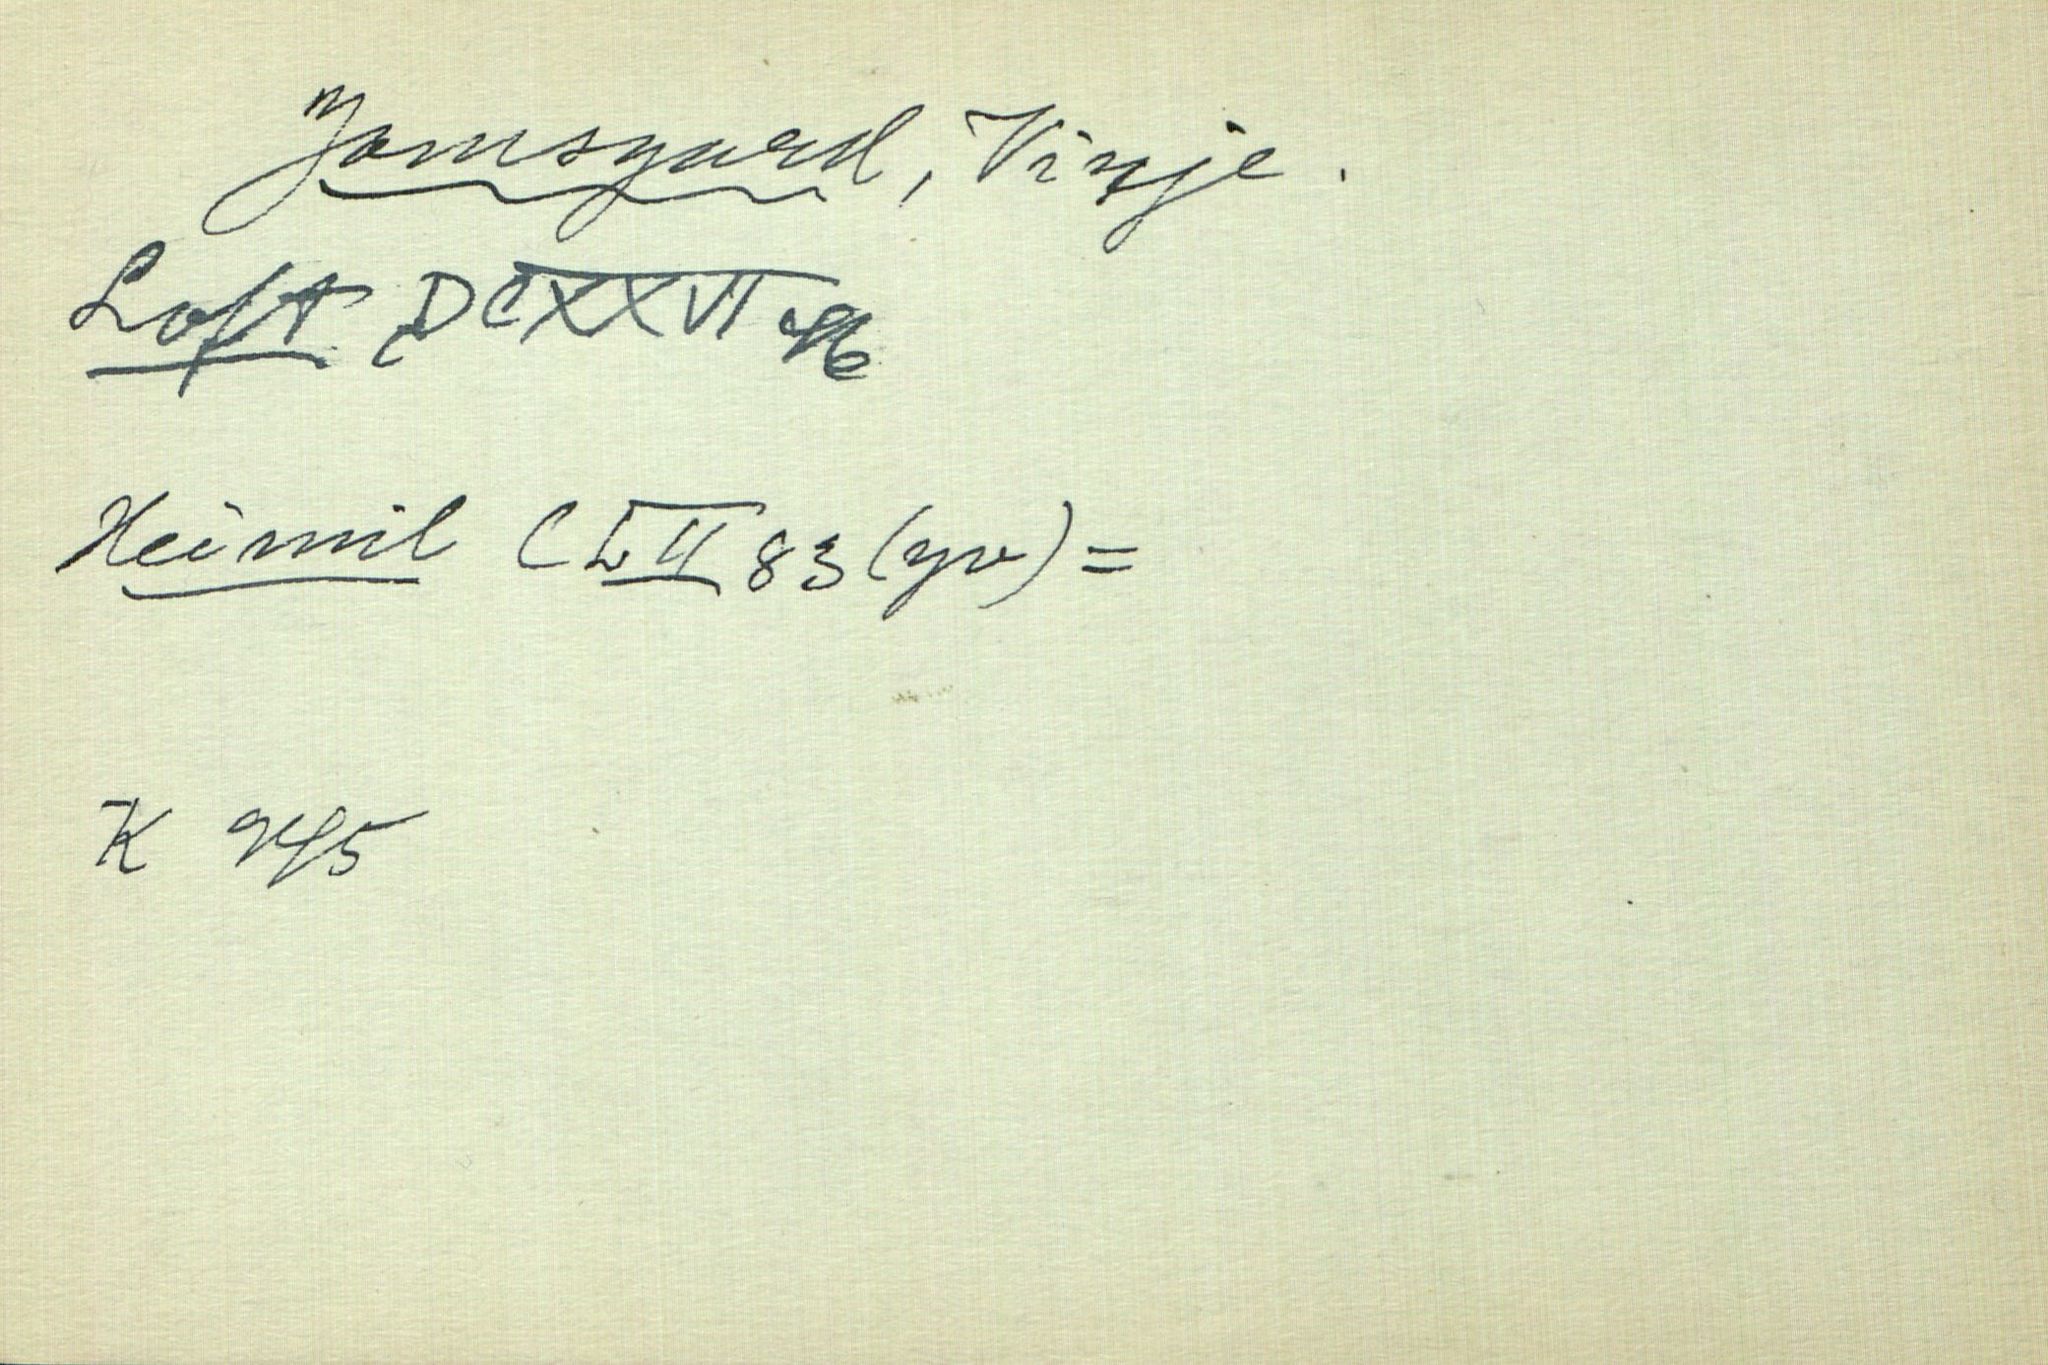 Jamsgard, Vinje.
Loft DCXXVI 96
Heimil CLII 83 (yv) =
K 245